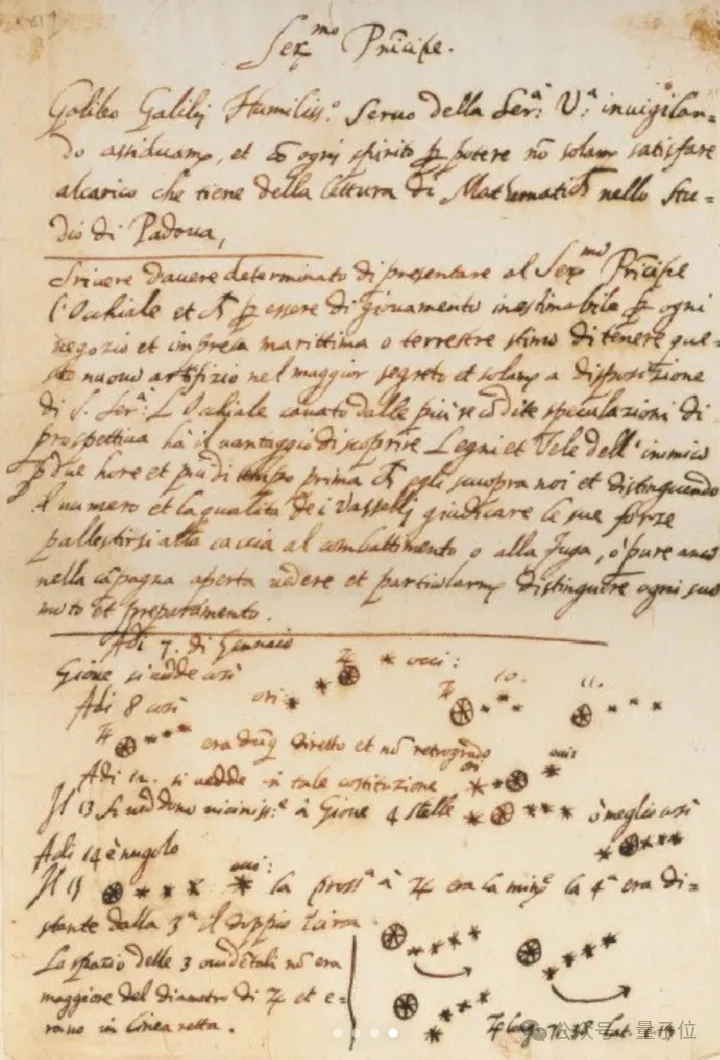 Ser.mo Prīcipe.
Galileo Galilej Humiliss.º Servo della Ser.ª V.ª invigilan=
do assiduam.e, et cō ogni spirito ꝑ potere nō solam.e satisfare
alcarico che tiene della lettura di Mathematich nello Stu=
dio di Padova,
Scrivere davere determinato di presentare al Ser.mo Prīcipe
l'Occhiale et ch ꝑ essere di giovamento inestimabile ꝑ ogni
negozio et impresa marittima o terrestre stimo di tenere que=
sto nuovo artifizio nel maggior segreto et solam.e a disposizione
di S. Ser.ª L'Occhiale cavato dalle più recōdite speculazioni di
prospettiva ha il vantaggio di scoprire Legni et Vele dell'inimico
ꝑ due hore et più di tempo prima ch egli scuopra noi et distinguendo
il numero et la qualità dei Vasselli giudicare le sue forze
pallestirsi alla caccia al combattimento o alla fuga, o pure anco
nella cāpagna aperta vedere et particolarm.e distinguere ogni suo
moto et preparamento.
Adi 7. di Gennaio
Gione si vedde così ♃ * * occi:
Adi 8 così ori. * ♃ 10. 11.
♃ * * * era dūq diretto et nō retrogrado
Adi 12. si vedde in tale costituzione ori * * * occis
Il 13 si veddono viciniss.e à Giove 4 stelle * * * * ò meglio così
Adi 14 è nugolo
Il 15 * * * * occi: la pross.ª à ♃ era la min.e la 4.ª era di=
stante dalla 3.ª il doppio Īcirca
Lo spazio delle 3 occidētali nō era
maggiore del diametro di ♃ et e=
rano in linea retta.
♃ long. 71.38 Lat. 1.13
公众号 · 量子位